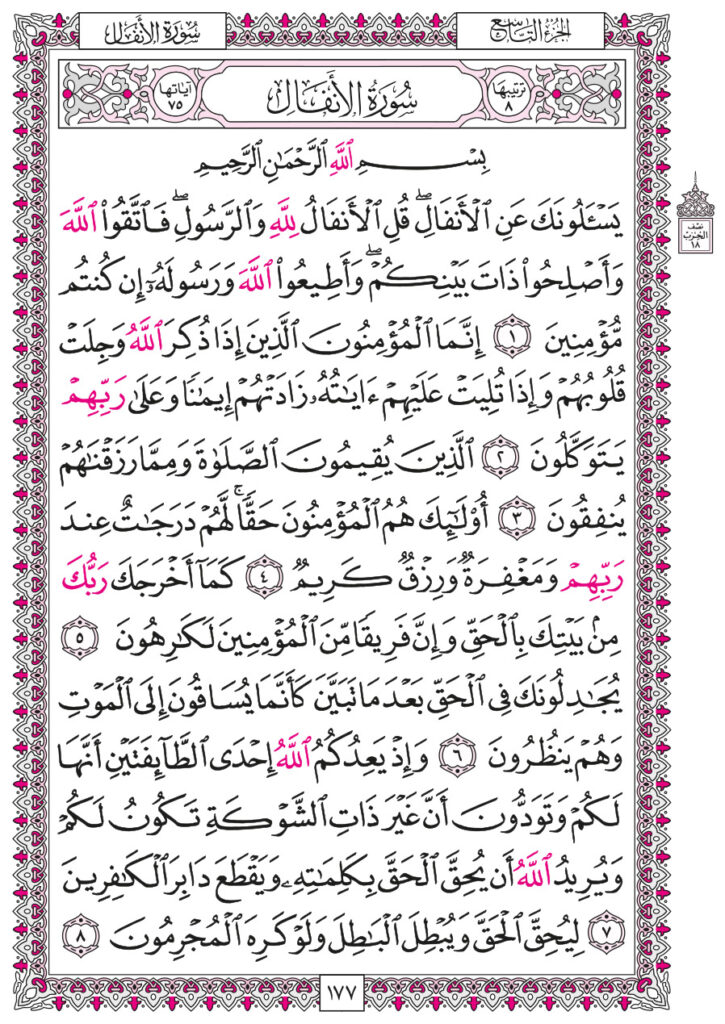 سُورَةُ الأَنفَالِ
الجُزْءُ التَّاسِعُ
آيَاتُهَا ٧٥
سُورَةُ الأَنفَالِ
تَرْتِيبُهَا ٨
بِسْمِ ٱللَّهِ ٱلرَّحْمَٰنِ ٱلرَّحِيمِ
يَسْـَٔلُونَكَ عَنِ ٱلْأَنفَالِۖ قُلِ ٱلْأَنفَالُ لِلَّهِ وَٱلرَّسُولِۖ فَٱتَّقُوا۟ ٱللَّهَ
نِصْفُ الحِزْبِ ١٨
وَأَصْلِحُوا۟ ذَاتَ بَيْنِكُمْۖ وَأَطِيعُوا۟ ٱللَّهَ وَرَسُولَهُۥٓ إِن كُنتُم
مُّؤْمِنِينَ ١ إِنَّمَا ٱلْمُؤْمِنُونَ ٱلَّذِينَ إِذَا ذُكِرَ ٱللَّهُ وَجِلَتْ
قُلُوبُهُمْ وَإِذَا تُلِيَتْ عَلَيْهِمْ ءَايَٰتُهُۥ زَادَتْهُمْ إِيمَٰنًا وَعَلَىٰ رَبِّهِمْ
يَتَوَكَّلُونَ ٢ ٱلَّذِينَ يُقِيمُونَ ٱلصَّلَوٰةَ وَمِمَّا رَزَقْنَٰهُمْ
يُنفِقُونَ ٣ أُو۟لَٰٓئِكَ هُمُ ٱلْمُؤْمِنُونَ حَقًّاۚ لَّهُمْ دَرَجَٰتٌ عِندَ
رَبِّهِمْ وَمَغْفِرَةٌ وَرِزْقٌ كَرِيمٌ ٤ كَمَآ أَخْرَجَكَ رَبُّكَ
مِنۢ بَيْتِكَ بِٱلْحَقِّ وَإِنَّ فَرِيقًا مِّنَ ٱلْمُؤْمِنِينَ لَكَٰرِهُونَ ٥
يُجَٰدِلُونَكَ فِى ٱلْحَقِّ بَعْدَ مَا تَبَيَّنَ كَأَنَّمَا يُسَاقُونَ إِلَى ٱلْمَوْتِ
وَهُمْ يَنظُرُونَ ٦ وَإِذْ يَعِدُكُمُ ٱللَّهُ إِحْدَى ٱلطَّآئِفَتَيْنِ أَنَّهَا
لَكُمْ وَتَوَدُّونَ أَنَّ غَيْرَ ذَاتِ ٱلشَّوْكَةِ تَكُونُ لَكُمْ
وَيُرِيدُ ٱللَّهُ أَن يُحِقَّ ٱلْحَقَّ بِكَلِمَٰتِهِۦ وَيَقْطَعَ دَابِرَ ٱلْكَٰفِرِينَ
٧ لِيُحِقَّ ٱلْحَقَّ وَيُبْطِلَ ٱلْبَٰطِلَ وَلَوْ كَرِهَ ٱلْمُجْرِمُونَ ٨
١٧٧